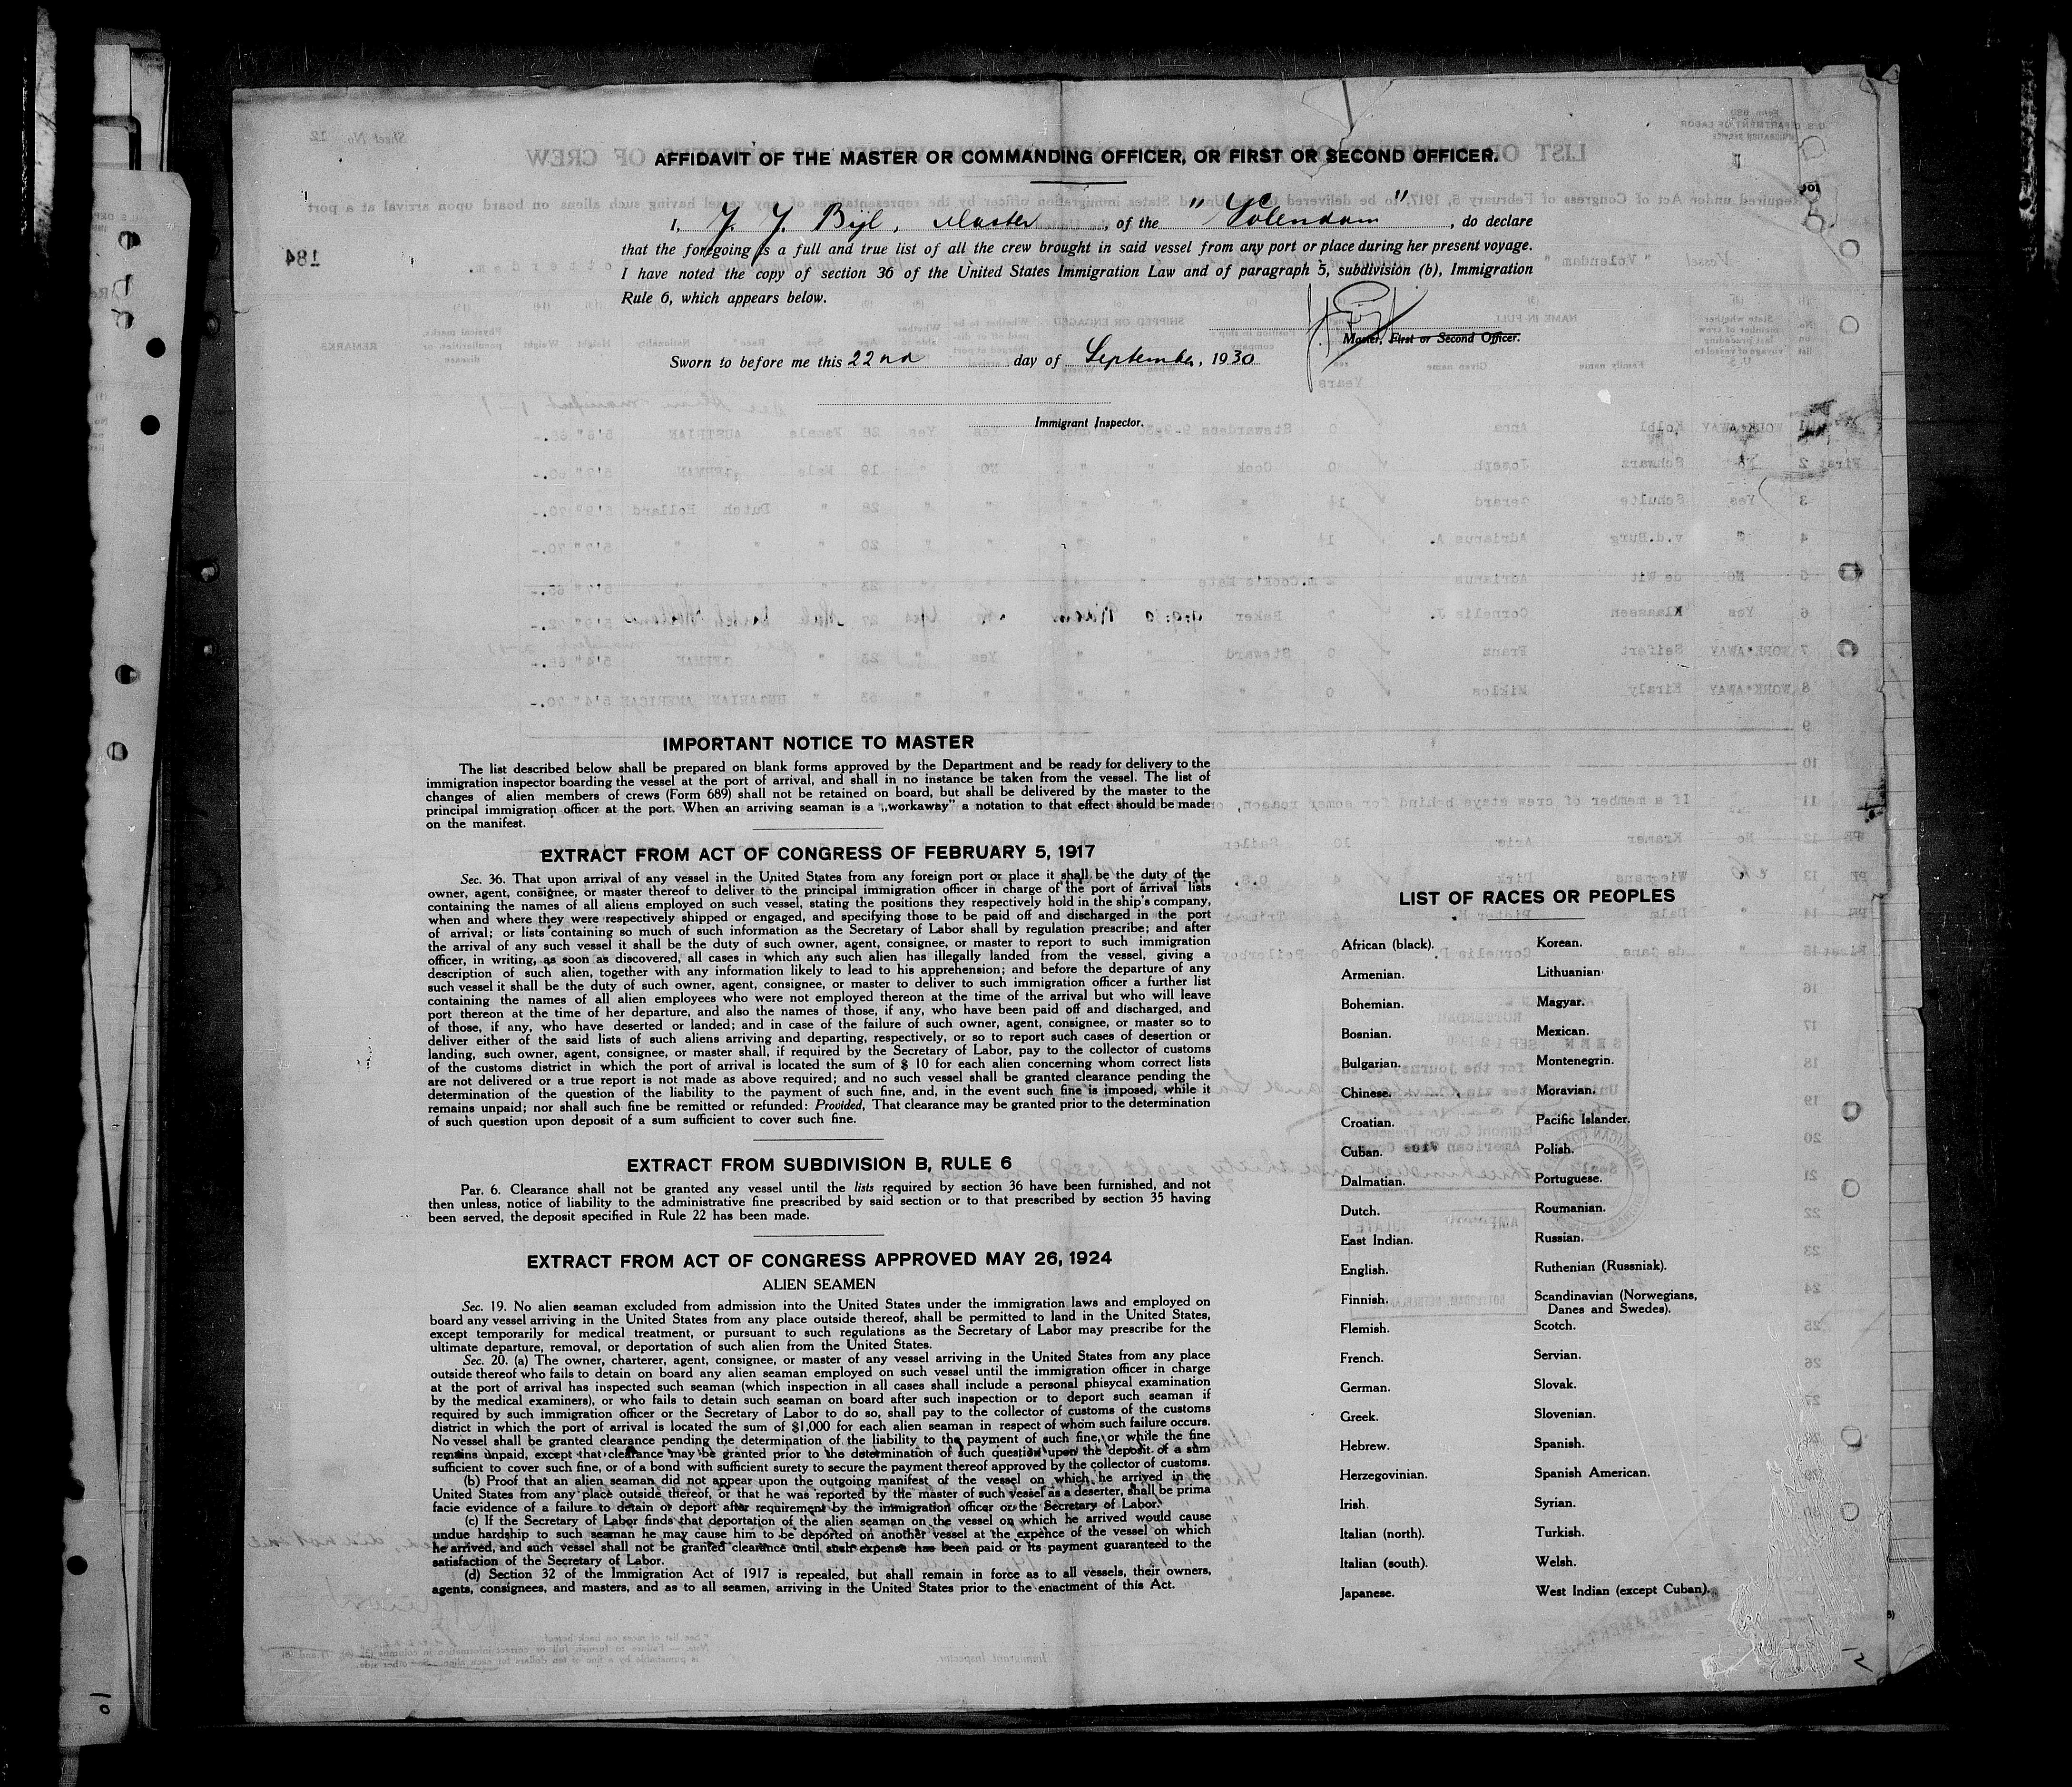 AFFIDAVIT OF THE MASTER OR COMMANDING OFFICER, OR FIRST OR SECOND OFFICER.
I, J. J. Bijl, Master, of the "Volendam", do declare
that the foregoing is a full and true list of all the crew brought in said vessel from any port or place during her present voyage.
I have noted the copy of section 36 of the United States Immigration Law and of paragraph 5, subdivision (b), Immigration
Rule 6, which appears below.
Master, First or Second Officer.
Sworn to before me this 22nd day of September, 1930
Immigrant Inspector.
IMPORTANT NOTICE TO MASTER
The list described below shall be prepared on blank forms approved by the Department and be ready for delivery to the
immigration inspector boarding the vessel at the port of arrival, and shall in no instance be taken from the vessel. The list of
changes of alien members of crews (Form 689) shall not be retained on board, but shall be delivered by the master to the
principal immigration officer at the port. When an arriving seaman is a „workaway" a notation to that effect should be made
on the manifest.
EXTRACT FROM ACT OF CONGRESS OF FEBRUARY 5, 1917
Sec. 36. That upon arrival of any vessel in the United States from any foreign port or place it shall be the duty of the
owner, agent, consignee, or master thereof to deliver to the principal immigration officer in charge of the port of arrival lists
containing the names of all aliens employed on such vessel, stating the positions they respectively hold in the ship's company,
when and where they were respectively shipped or engaged, and specifying those to be paid off and discharged in the port
of arrival; or lists containing so much of such information as the Secretary of Labor shall by regulation prescribe; and after
the arrival of any such vessel it shall be the duty of such owner, agent, consignee, or master to report to such immigration
officer, in writing, as soon as discovered, all cases in which any such alien has illegally landed from the vessel, giving a
description of such alien, together with any information likely to lead to his apprehension; and before the departure of any
such vessel it shall be the duty of such owner, agent, consignee, or master to deliver to such immigration officer a further list
containing the names of all alien employees who were not employed thereon at the time of the arrival but who will leave
port thereon at the time of her departure, and also the names of those, if any, who have been paid off and discharged, and
of those, if any, who have deserted or landed; and in case of the failure of such owner, agent, consignee, or master so to
deliver either of the said lists of such aliens arriving and departing, respectively, or so to report such cases of desertion or
landing, such owner, agent, consignee, or master shall, if required by the Secretary of Labor, pay to the collector of customs
of the customs district in which the port of arrival is located the sum of $ 10 for each alien concerning whom correct lists
are not delivered or a true report is not made as above required; and no such vessel shall be granted clearance pending the
determination of the question of the liability to the payment of such fine, and, in the event such fine is imposed, while it
remains unpaid; nor shall such fine be remitted or refunded: Provided, That clearance may be granted prior to the determination
of such question upon deposit of a sum sufficient to cover such fine.
EXTRACT FROM SUBDIVISION B, RULE 6
Par. 6. Clearance shall not be granted any vessel until the lists required by section 36 have been furnished, and not
then unless, notice of liability to the administrative fine prescribed by said section or to that prescribed by section 35 having
been served, the deposit specified in Rule 22 has been made.
EXTRACT FROM ACT OF CONGRESS APPROVED MAY 26, 1924
ALIEN SEAMEN
Sec. 19. No alien seaman excluded from admission into the United States under the immigration laws and employed on
board any vessel arriving in the United States from any place outside thereof, shall be permitted to land in the United States,
except temporarily for medical treatment, or pursuant to such regulations as the Secretary of Labor may prescribe for the
ultimate departure, removal, or deportation of such alien from the United States.
Sec. 20. (a) The owner, charterer, agent, consignee, or master of any vessel arriving in the United States from any place
outside thereof who fails to detain on board any alien seaman employed on such vessel until the immigration officer in charge
at the port of arrival has inspected such seaman (which inspection in all cases shall include a personal phisycal examination
by the medical examiners), or who fails to detain such seaman on board after such inspection or to deport such seaman if
required by such immigration officer or the Secretary of Labor to do so, shall pay to the collector of customs of the customs
district in which the port of arrival is located the sum of $1,000 for each alien seaman in respect of whom such failure occurs.
No vessel shall be granted clearance pending the determination of the liability to the payment of such fine, or while the fine
remains unpaid, except that clearance may be granted prior to the determination of such question upon the deposit of a sum
sufficient to cover such fine, or of a bond with sufficient surety to secure the payment thereof approved by the collector of customs.
(b) Proof that an alien seaman did not appear upon the outgoing manifest of the vessel on which he arrived in the
United States from any place outside thereof, or that he was reported by the master of such vessel as a deserter, shall be prima
facie evidence of a failure to detain or deport after requirement by the immigration officer or the Secretary of Labor.
(c) If the Secretary of Labor finds that deportation of the alien seaman on the vessel on which he arrived would cause
undue hardship to such seaman he may cause him to be deported on another vessel at the expence of the vessel on which
he arrived, and such vessel shall not be granted clearance until such expense has been paid or its payment guaranteed to the
satisfaction of the Secretary of Labor.
(d) Section 32 of the Immigration Act of 1917 is repealed, but shall remain in force as to all vessels, their owners,
agents, consignees, and masters, and as to all seamen, arriving in the United States prior to the enactment of this Act.
LIST OF RACES OR PEOPLES
African (black).
Armenian.
Bohemian.
Bosnian.
Bulgarian.
Chinese.
Croatian.
Cuban.
Dalmatian.
Dutch.
East Indian.
English.
Finnish.
Flemish.
French.
German.
Greek.
Hebrew.
Herzegovinian.
Irish.
Italian (north).
Italian (south).
Japanese.
Korean.
Lithuanian
Magyar.
Mexican.
Montenegrin.
Moravian.
Pacific Islander.
Polish.
Portuguese.
Roumanian.
Russian.
Ruthenian (Russniak).
Scandinavian (Norwegians,
Danes and Swedes).
Scotch.
Servian.
Slovak.
Slovenian.
Spanish.
Spanish American.
Syrian.
Turkish.
Welsh.
West Indian (except Cuban).